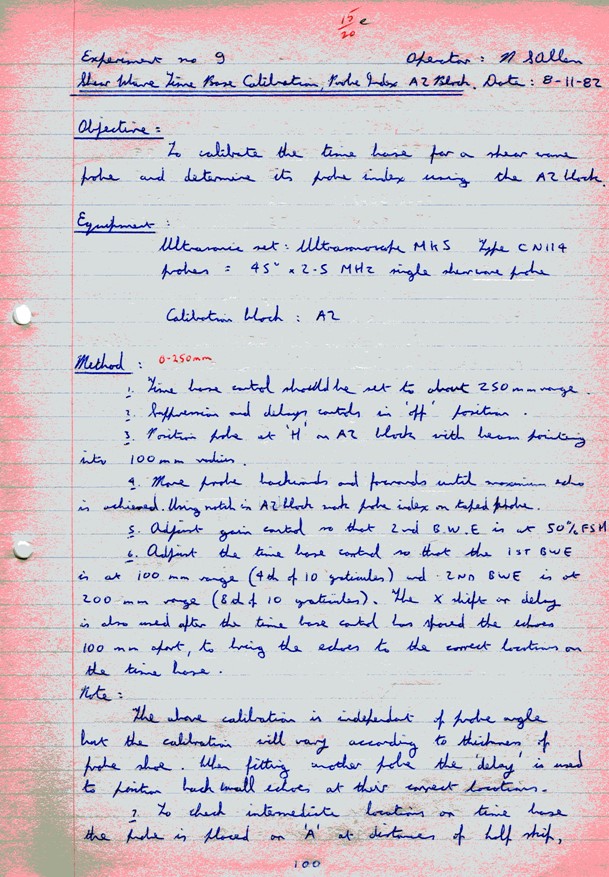 15/20
Experiment no 9 Operator: N SAllen
Shear Wave Time Base Calibration, Probe Index A2 Block. Date: 8-11-82
Objective:
To calibrate the time base for a shear wave
probe and determine its probe index using the A2 block.
Equipment:
Ultrasonic set: Ultrasonoscope MK5 Type CN114
probes = 45° x 2.5 MHz single shearwave probe
Calibration block: A2
Method: 0-250mm
1. Time base control should be set to about 250mm range.
2. Suppression and delays controls in 'off' position.
3. Position probe at 'H' on A2 block with beam pointing
into 100mm radius.
4. Move probe backwards and forwards until maximum echo
is achieved. Using notch in A2 block mark probe index on taped probe.
5. Adjust gain control so that 2nd B.W.E is at 50% FSH
6. Adjust the time base control so that the 1ST BWE
is at 100 mm range (4th of 10 graticules) and 2ND BWE is at
200 mm range (8th of 10 graticules). The X shift or delay
is also used after the time base control has spaced the echoes
100 mm apart, to bring the echoes to the correct locations on
the time base.
Note:
The above calibration is independent of probe angle
but the calibration will vary according to thickness of
probe shoe. When fitting another probe the 'delay' is used
to position backwall echoes at their correct locations.
7. To check intermediate locations on time base
the probe is placed on 'A' at distances of half skip,
100